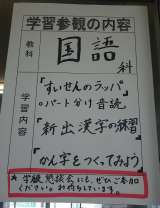 学習参観の内容
教科
国語
科
学習内容
『すいせんのラッパ』
○パート分け音読
『新出漢字の練習』
『かん字をつくってみよう』
★学級懇談会にも、ぜひご参加
ください。お待ちしています。